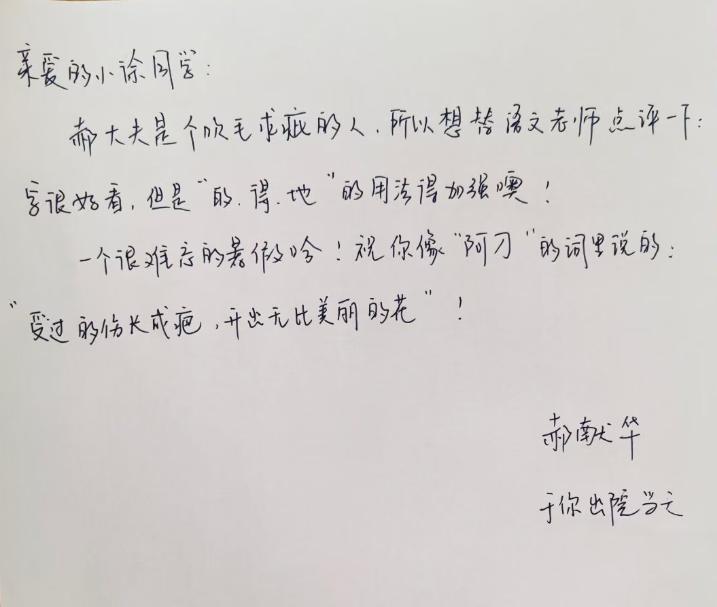 亲爱的小徐同学：
郝大夫是个吹毛求疵的人，所以想替语文老师点评一下：
字很好看，但是“的、得、地”的用法得加强噢！
一个很难忘的暑假哈！祝你像“阿刁”的词里说的：
“受过的伤长成疤，开出无比美丽的花”！
郝献华
于你出院当天